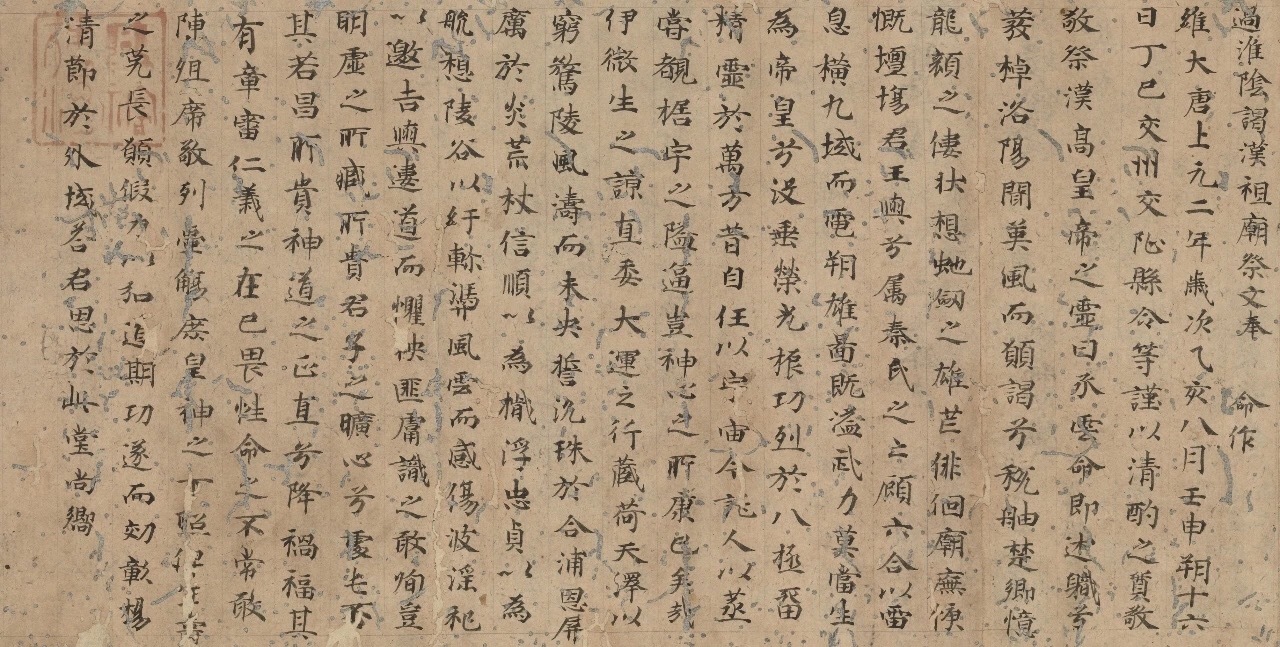 過淮陰謁漢祖廟祭文奉 命作
維大唐上元二年歲次乙亥八月壬申朔十六
日丁巳交州交阯縣令等謹以清酌之質敬
敬祭漢高皇帝之靈曰永雲命即述職兮
棹洛陽聞英風而願謁兮稅舳楚鄉憶
龍顏之僂狀想虵劔之雄芒俳佪廟廡俠
慨壇塲君王輿兮属秦氏之亡顧六合以雷
息橫九域而電朔雄啚既溢武力莫當生
為帝皇兮沒垂榮光振功列於八極留
精靈於萬方昔自任以宇宙今託人以蒸
嘗覩楛宇之隘逼豈神心之所康已矣哉
伊微生之諒直委大運之行藏荷天澤以
窮驚陵風濤而未央誓沉珠於合浦恩屏
厲於炎荒杖信順以為檝浮忠貞以為
航想陵谷以紆軫憑風雲而感傷波淫祀
以邀吉輿遺道而懼殃匪庸識之敢徇豈
明虛之所臧所貴君子之曠心兮
其若昌所貴神道之正直兮降禍福其
有章寧仁義之在己畏性命之不常敢
陣俎席敬列壘觴庶皇神之下照
之荒長願假力以追期功遂而効彰楊
清節於外域荅君思於此堂尚饗